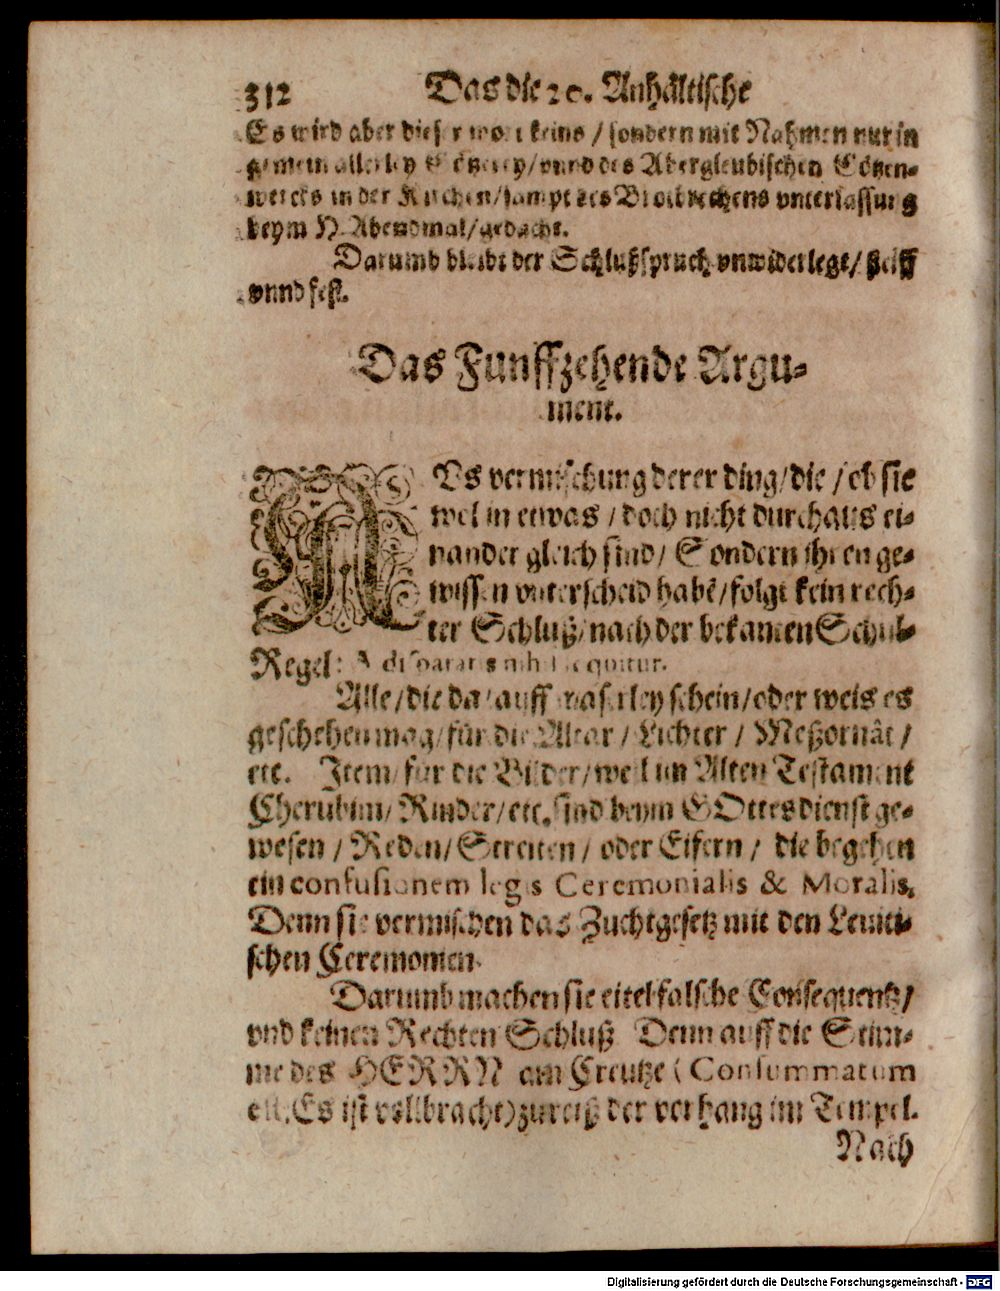 312 Das die 20. Anhältische
Es wird aber dieser wort keins / sondern mit Nahmen nur in
gemein allerley Götzerey / vnnd des Abergleubischen Götzen-
wercks in der Kirchen / sampt des Brotbrechens vnterlassung
beym H. Abendmal / gedacht.
Darumb bleibt der Schlußspruch vnwiderlegt / steiff
vnnd fest.
Das Funffzehende Argu-
ment.
AVs vermischung derer ding / die / ob sie
wol in etwas / doch nicht durchaus ei-
nander gleich sind / Sondern ihren ge-
wissen vnterscheid habē / folgt kein rech-
ter Schluß / nach der bekanten Schul-
Regel: A disparatis nihil sequitur.
Alle / die da / auff waserley schein / oder weis es
geschehen mag / für die Altar / Lichter / Meßornāt /
etc. Item / für die Bilder / weil im Alten Testament
Cherubim / Rinder / etc. sind beym GOttesdienst ge-
wesen / Reden / Streiten / oder Eifern / die begehen
ein confusionem legis Ceremonialis & Moralis.
Denn sie vermischen das Zuchtgesetz mit den Leuiti-
schen Ceremonien.
Darumb machen sie eitel falsche Consequentz /
vnd keinen Rechten Schluß Denn auff die Stim-
me des HERRN am Creutze (Consummatum
est. Es ist vollbracht) zureiß der vorhang im Tempel.
Nach
Digitalisierung gefördert durch die Deutsche Forschungsgemeinschaft - DFG